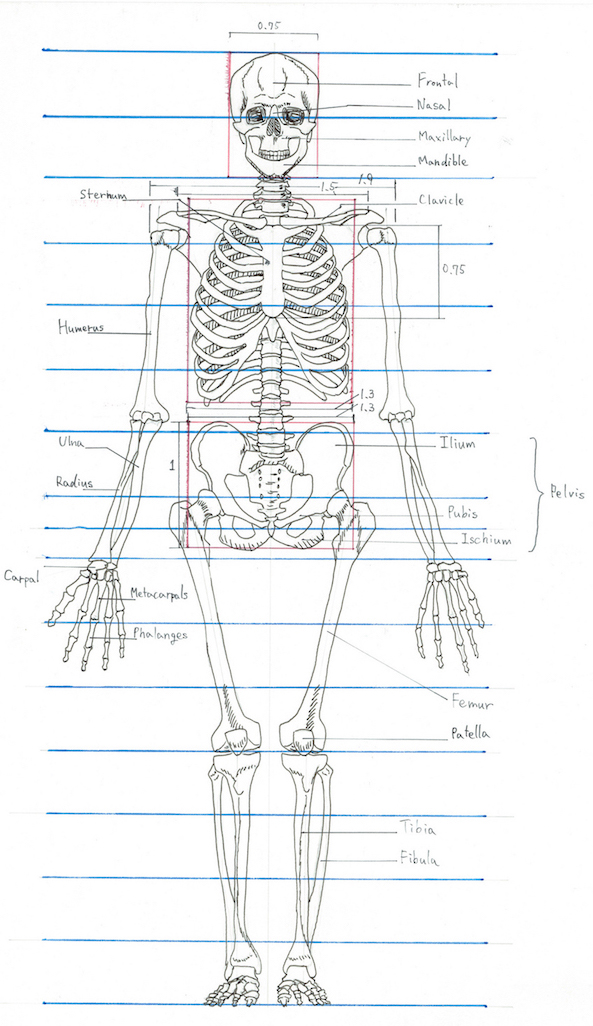 0.75
Frontal
Nasal
Maxillary
Mandible
1.9
1.5
Sternum
Clavicle
0.75
Humerus
1.3
1.3
Ulna
Ilium
1
Radius
Pelvis
Pubis
Ischium
Carpal
Metacarpals
Phalanges
Femur
Patella
Tibia
Fibula